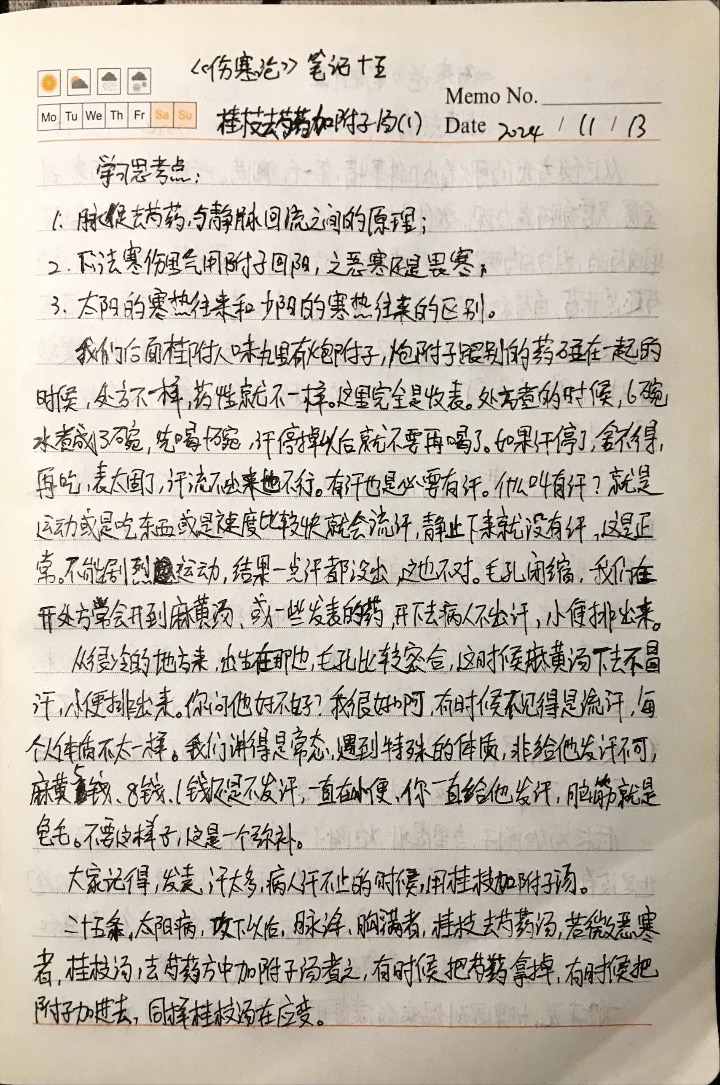 《伤寒论》笔记十五
Mo Tu We Th Fr Sa Su
Memo No.
桂枝去芍药加附子汤(1)
Date 2024 / 11 / 13
学习思考点：
1. 脉促去芍药，与静脉回流之间的原理；
2. 下法寒伤里气用附子回阳，之恶寒还是畏寒；
3. 太阳的寒热往来和少阳的寒热往来的区别。
我们后面桂附八味丸里有炮附子，炮附子跟别的药硾在一起的
时候，处方不一样，药性就不一样。这里完全是收表。处方煮的时候，6碗
水煮成3碗，先喝1碗，汗停掉以后就不要再喝了。如果汗停了，舍不得，
再吃，表太固了，汗流不出来也不行。有汗也是必要有汗。什么叫有汗？就是
运动或是吃东西或是速度比较快就会流汗，静止下来就没有汗，这是正
常。不能剧烈运动，结果一点汗都没出，这也不对。毛孔闭缩，我们在
开处方常会开到麻黄汤、或一些发表的药，开下去病人不出汗，小便排出来。
从很冷的地方来，出生在那边，毛孔比较密合，这时候麻黄汤下去不冒
汗，小便排出来。你问他好不好？我很好啊，有时候不见得是流汗，每
个人体质不太一样。我们讲得是常态，遇到特殊的体质，非给他发汗不可，
麻黄5钱、8钱、1钱还是不发汗，一直在小便、你一直给他发汗，脑筋就是
龟毛。不要这样子，这是一个弥补。
大家记得，发表，汗太多，病人汗不止的时候，用桂枝加附子汤。
二十五条，太阳病，攻下以后，脉浮、胸满者，桂枝去芍药汤，若微恶寒
者，桂枝汤，去芍药方中加附子汤者之，有时候把芍药拿掉，有时候把
附子加进去，同样桂枝汤在应变。